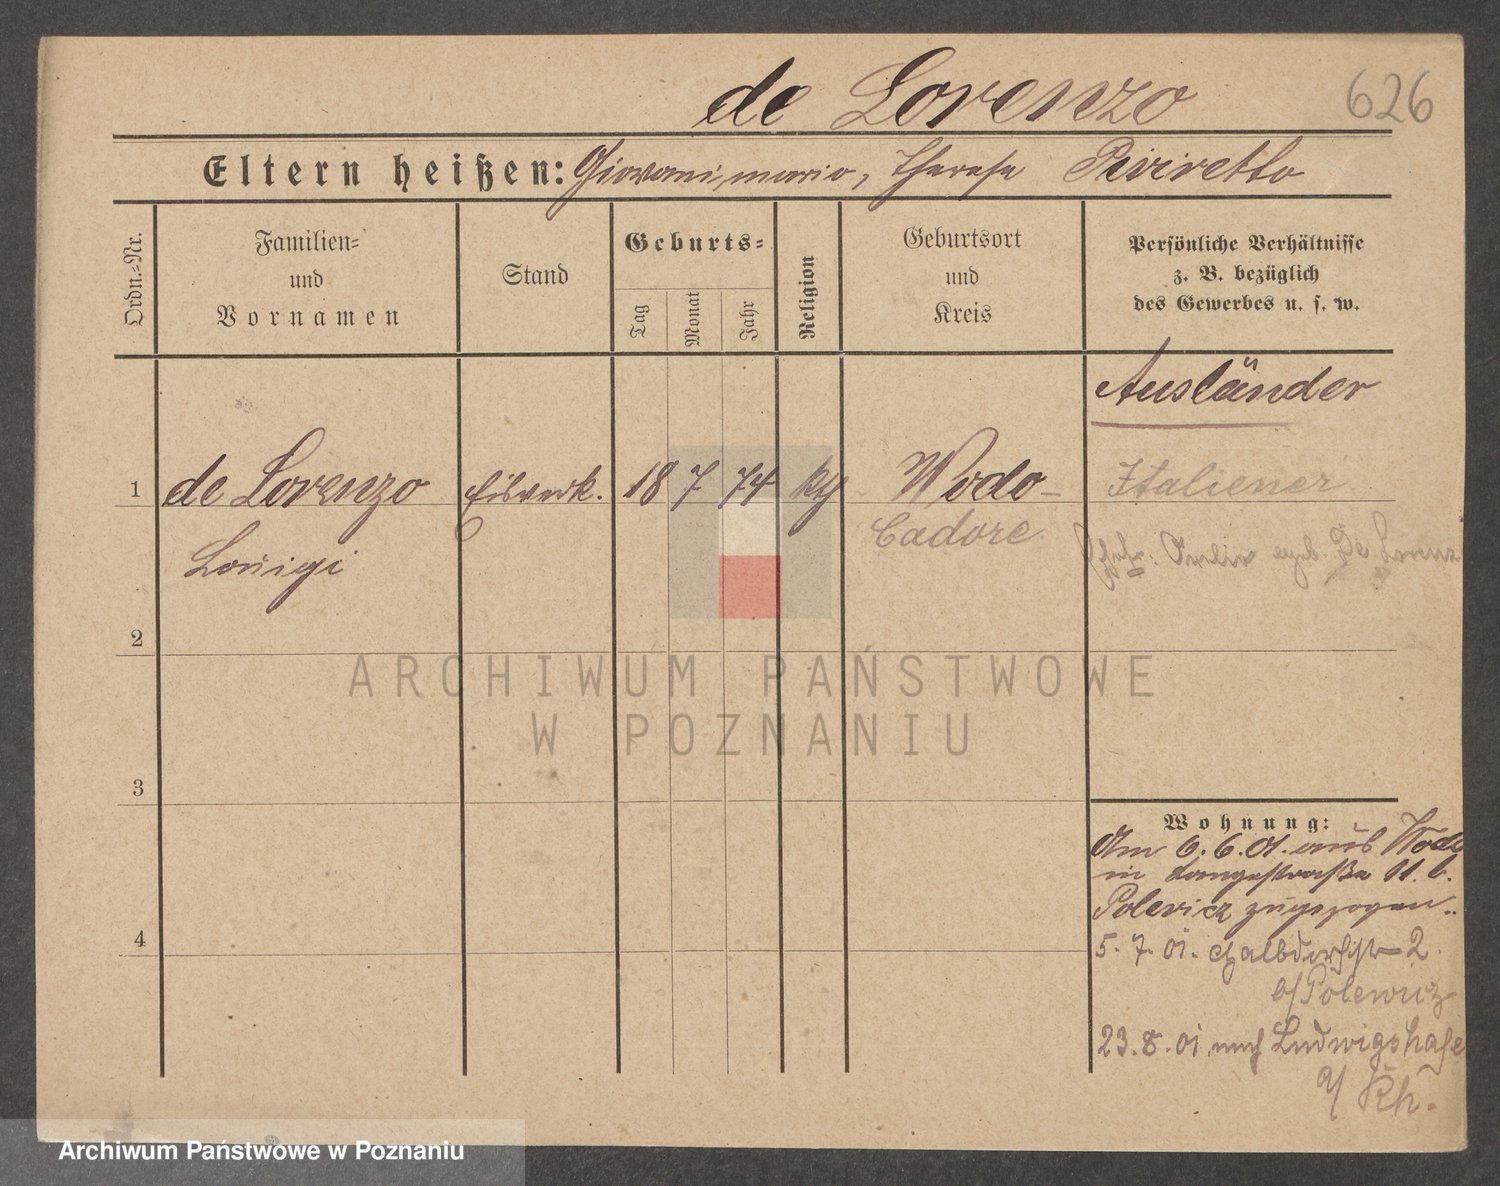 de Lorenzo
626
Eltern heißen: Giovani, mario, Therese Peviretto
Ordn.-Nr.
Familien-
und
Vornamen
Stand
Geburts-
Tag
Monat
Jahr
Religion
Geburtsort
und
Kreis
Persönliche Verhältnisse
z. B. bezüglich
des Gewerbes u. s. w.
Ausländer
1 de Lorenzo Eisverk. 18 7 74 Wodo- Italiener
Louigi Cadore
geb. De Lorenz
2
3
4
Wohnung:
Am 6.6.01. aus Wodo
in Langestraße 11. b.
Polewicz zugezogen..
5. 7. 01. Halbdorfstr 2.
b/ Polewicz
23. 8. 01. nach Ludwigshafe
a/ Rh.
ARCHIWUM PAŃSTWOWE
W POZNANIU
Archiwum Państwowe w Poznaniu